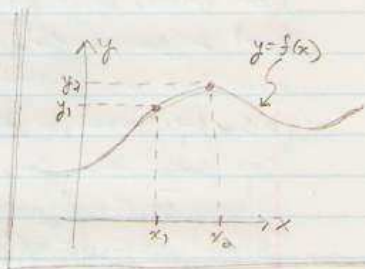 y
y=f(x)
y2
y1
x
x1
x2